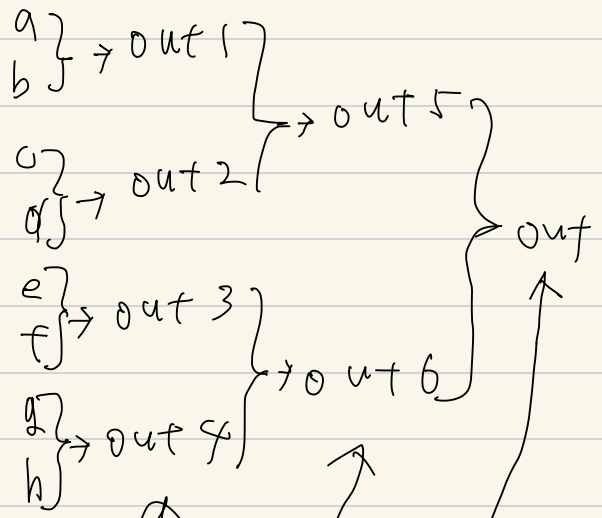 a
b
→ out 1
c
d
→ out 2
→ out 5
e
f
→ out 3
g
h
→ out 4
→ out 6
out